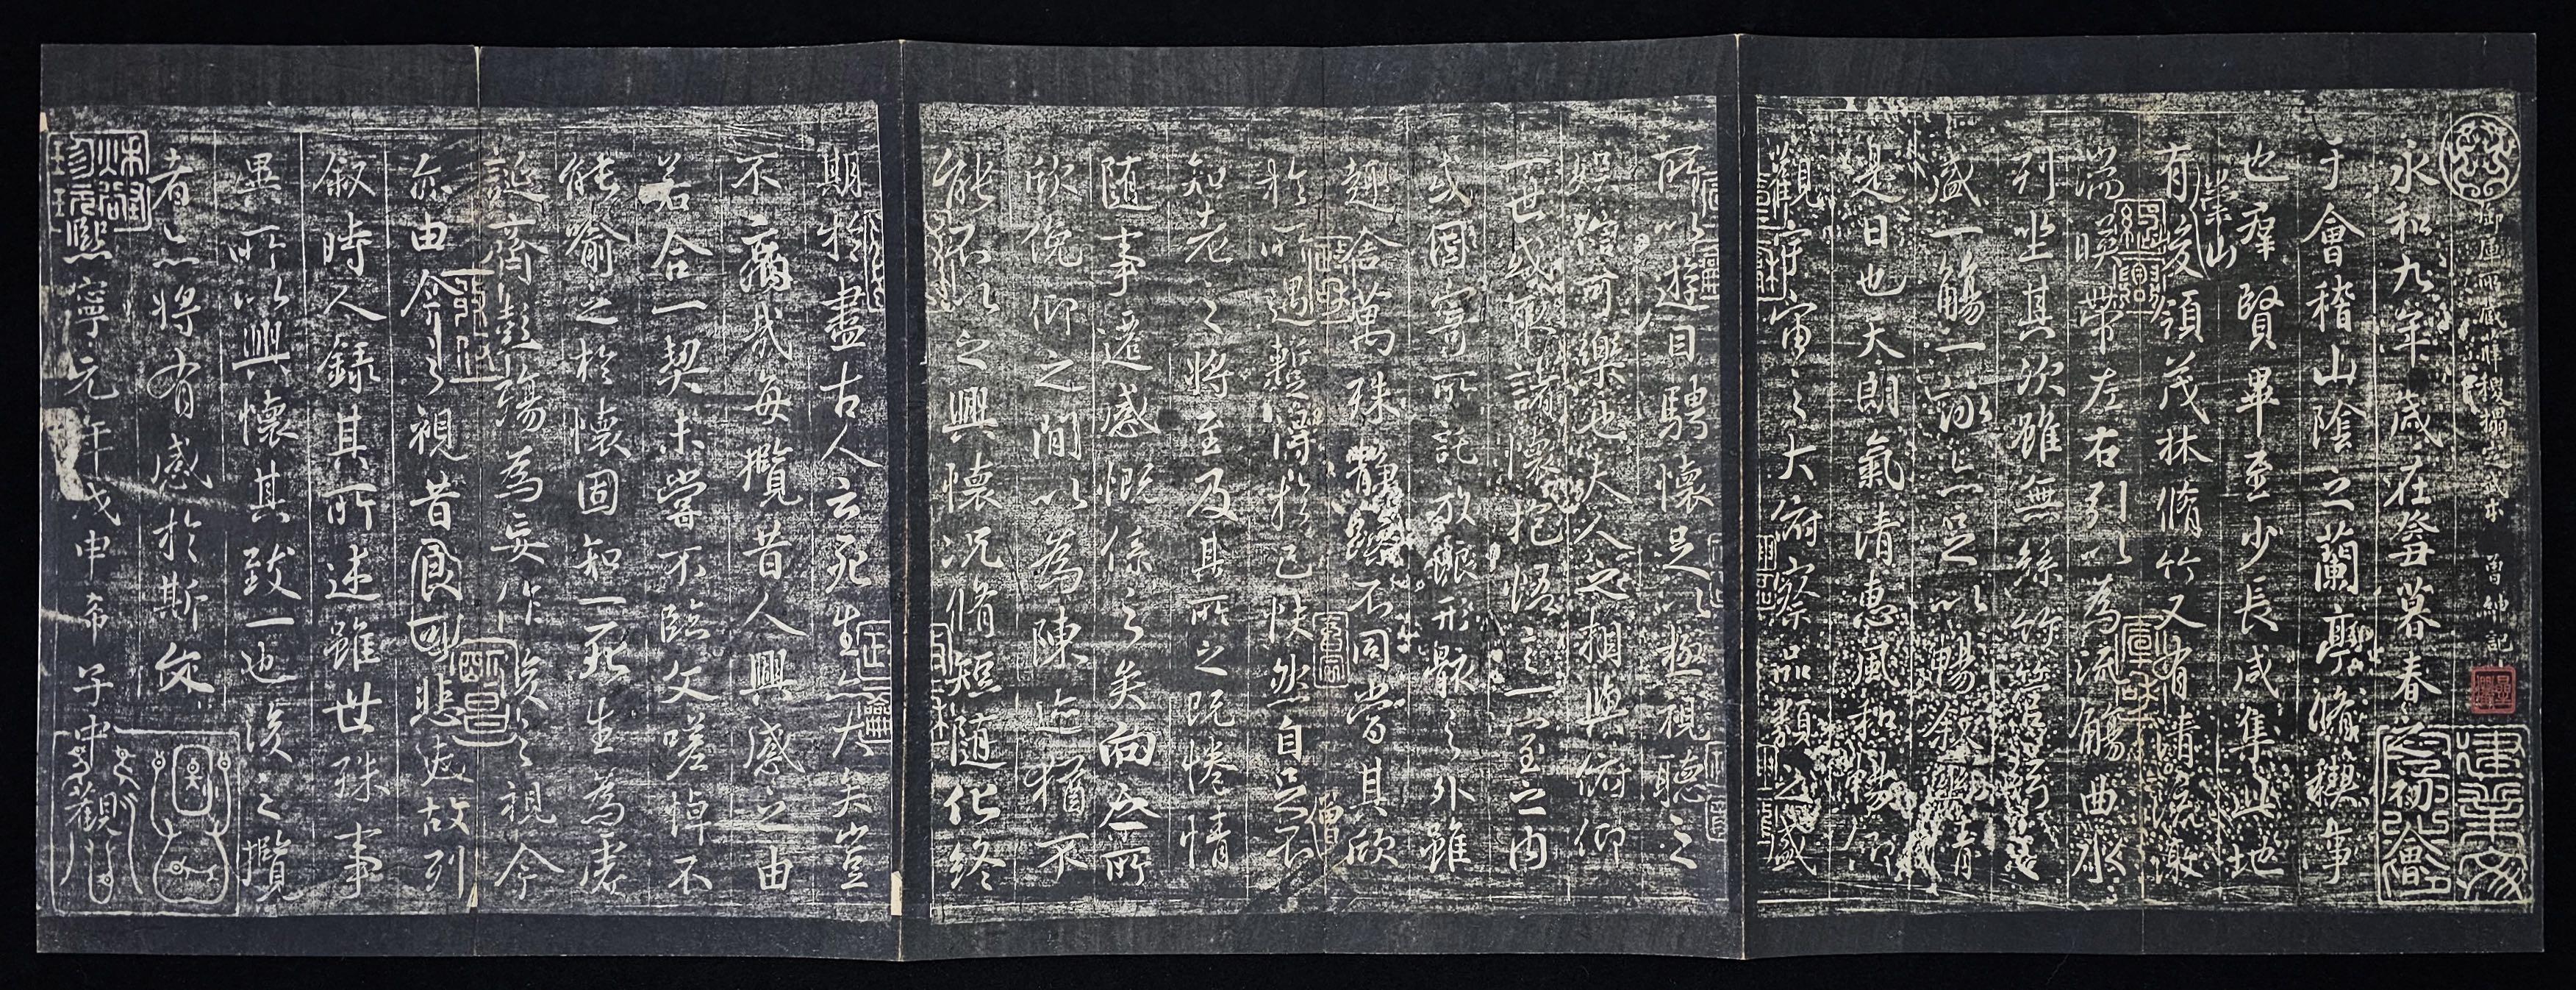 御府所藏
曾紳記
永和九年歲在癸丑暮春之初會
于會稽山陰之蘭亭脩稧事
也羣賢畢至少長咸集此地
有崇山峻領茂林脩竹又有清流激
湍暎帶左右引以為流觴曲水
列坐其次雖無絲竹管弦之
盛一觴一詠亦足以暢敘幽情
是日也天朗氣清惠風和暢仰
觀宇宙之大俯察品類之盛
所以遊目騁懷足以極視聽之
娛信可樂也夫人之相與俯仰
一世或取諸懷抱悟言一室之內
或因寄所託放浪形骸之外雖
趣舍萬殊靜躁不同當其欣
於所遇暫得於己怏然自足不
知老之將至及其所之既惓情
隨事遷感慨係之矣向之所
欣俛仰之間以為陳迹猶不
能不以之興懷況脩短隨化終
期於盡古人云死生亦大矣豈
不痛哉每攬昔人興感之由
若合一契未嘗不臨文嗟悼不
能喻之於懷固知一死生為虛
誕齊彭殤為妄作後之視今
亦由今之視昔悲夫故列
敘時人錄其所述雖世殊事
異所以興懷其致一也後之攬
者亦將有感於斯文
熙寧元年戊申